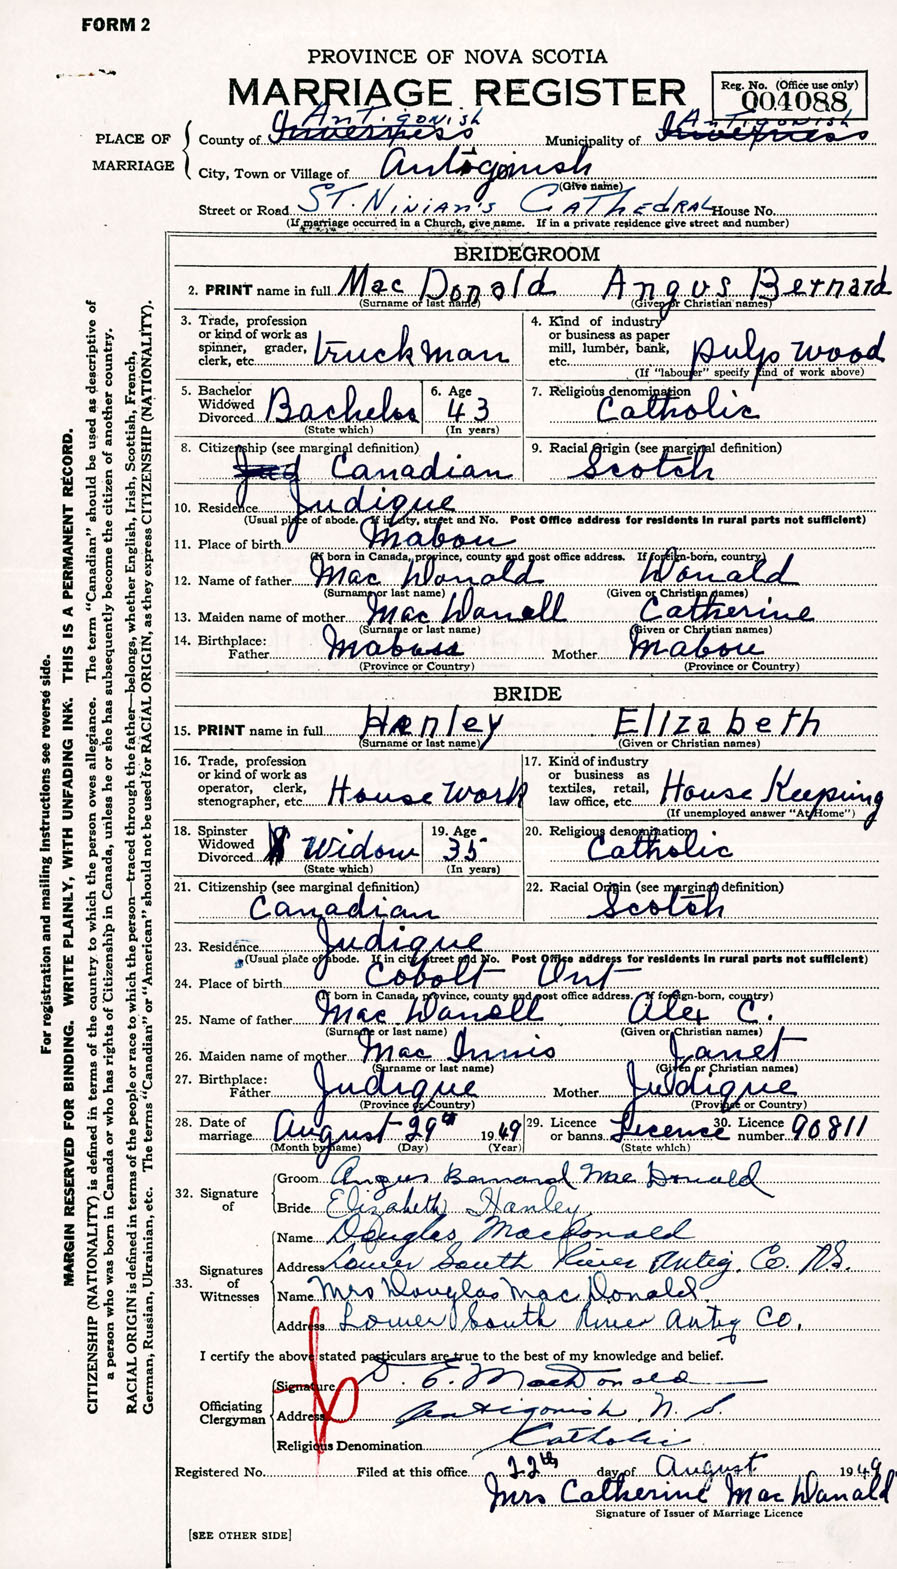 FORM 2
PROVINCE OF NOVA SCOTIA
MARRIAGE REGISTER
Reg. No. (Office use only)
004088
PLACE OF MARRIAGE
Antigonish Antigonish
County of Inverness Municipality of Inverness
City, Town or Village of Antigonish
(Give name)
Street or Road St. Ninian's Cathedral House No.
(If marriage occurred in a Church, give name. If in a private residence give street and number)
BRIDEGROOM
2. PRINT name in full Mac Donald Angus Bernard
(Surname or last name) (Given or Christian names)
3. Trade, profession or kind of work as spinner, grader, clerk, etc. truckman
4. Kind of industry or business as paper mill, lumber, bank, etc. pulp wood
(If "labourer" specify kind of work above)
5. Bachelor Widowed Divorced Bachelor
(State which)
6. Age 43
(In years)
7. Religious denomination Catholic
8. Citizenship (see marginal definition) Canadian
9. Racial Origin (see marginal definition) Scotch
10. Residence Judique
(Usual place of abode. If in city, street and No. Post Office address for residents in rural parts not sufficient)
11. Place of birth Mabou
(If born in Canada, province, county and post office address. If foreign-born, country)
12. Name of father Mac Donald Donald
(Surname or last name) (Given or Christian names)
13. Maiden name of mother Mac Danell Catherine
(Surname or last name) (Given or Christian names)
14. Birthplace: Father Mabou Mother Mabou
(Province or Country) (Province or Country)
BRIDE
15. PRINT name in full Hanley Elizabeth
(Surname or last name) (Given or Christian names)
16. Trade, profession or kind of work as operator, clerk, stenographer, etc. House Work
17. Kind of industry or business as textiles, retail, law office, etc. House Keeping
(If unemployed answer "At Home")
18. Spinster Widowed Divorced Widow
(State which)
19. Age 35
(In years)
20. Religious denomination Catholic
21. Citizenship (see marginal definition) Canadian
22. Racial Origin (see marginal definition) Scotch
23. Residence Judique
(Usual place of abode. If in city street and No. Post Office address for residents in rural parts not sufficient)
24. Place of birth Cobolt Ont
(If born in Canada, province, county and post office address. If foreign-born, country)
25. Name of father Mac Danell Alex C.
(Surname or last name) (Given or Christian names)
26. Maiden name of mother Mac Innis Janet
(Surname or last name) (Given or Christian names)
27. Birthplace: Father Judique Mother Judique
(Province or Country) (Province or Country)
28. Date of marriage August 29th 1949
(Month by name) (Day) (Year)
29. Licence or banns Licence
(State which)
30. Licence number 90811
32. Signature of
Groom Angus Bernard Mac Donald
Bride Elizabeth Hanley
33. Signatures of Witnesses
Name Douglas MacDonald
Address Lower South River Antig. Co. N.S.
Name Mrs Douglas Mac Donald.
Address Lower South River Antig Co.
I certify the above stated particulars are true to the best of my knowledge and belief.
Officiating Clergyman
Signature D. E. MacDonald
Address Antigonish N. S.
Religious Denomination Catholic
Registered No. Filed at this office 22th day of August 1949
Mrs Catherine Mac Donald
Signature of Issuer of Marriage Licence
[SEE OTHER SIDE]
For registration and mailing instructions see reverse side.
MARGIN RESERVED FOR BINDING. WRITE PLAINLY, WITH UNFADING INK. THIS IS A PERMANENT RECORD.
CITIZENSHIP (NATIONALITY) is defined in terms of the country to which the person owes allegiance. The term "Canadian" should be used as descriptive of
a person who was born in Canada or who has rights of Citizenship in Canada, unless he or she has subsequently become the citizen of another country.
RACIAL ORIGIN is defined in terms of the people or race to which the person—traced through the father—belongs, whether English, Irish, Scottish, French,
German, Russian, Ukrainian, etc. The terms "Canadian" or "American" should not be used for RACIAL ORIGIN, as they express CITIZENSHIP (NATIONALITY).